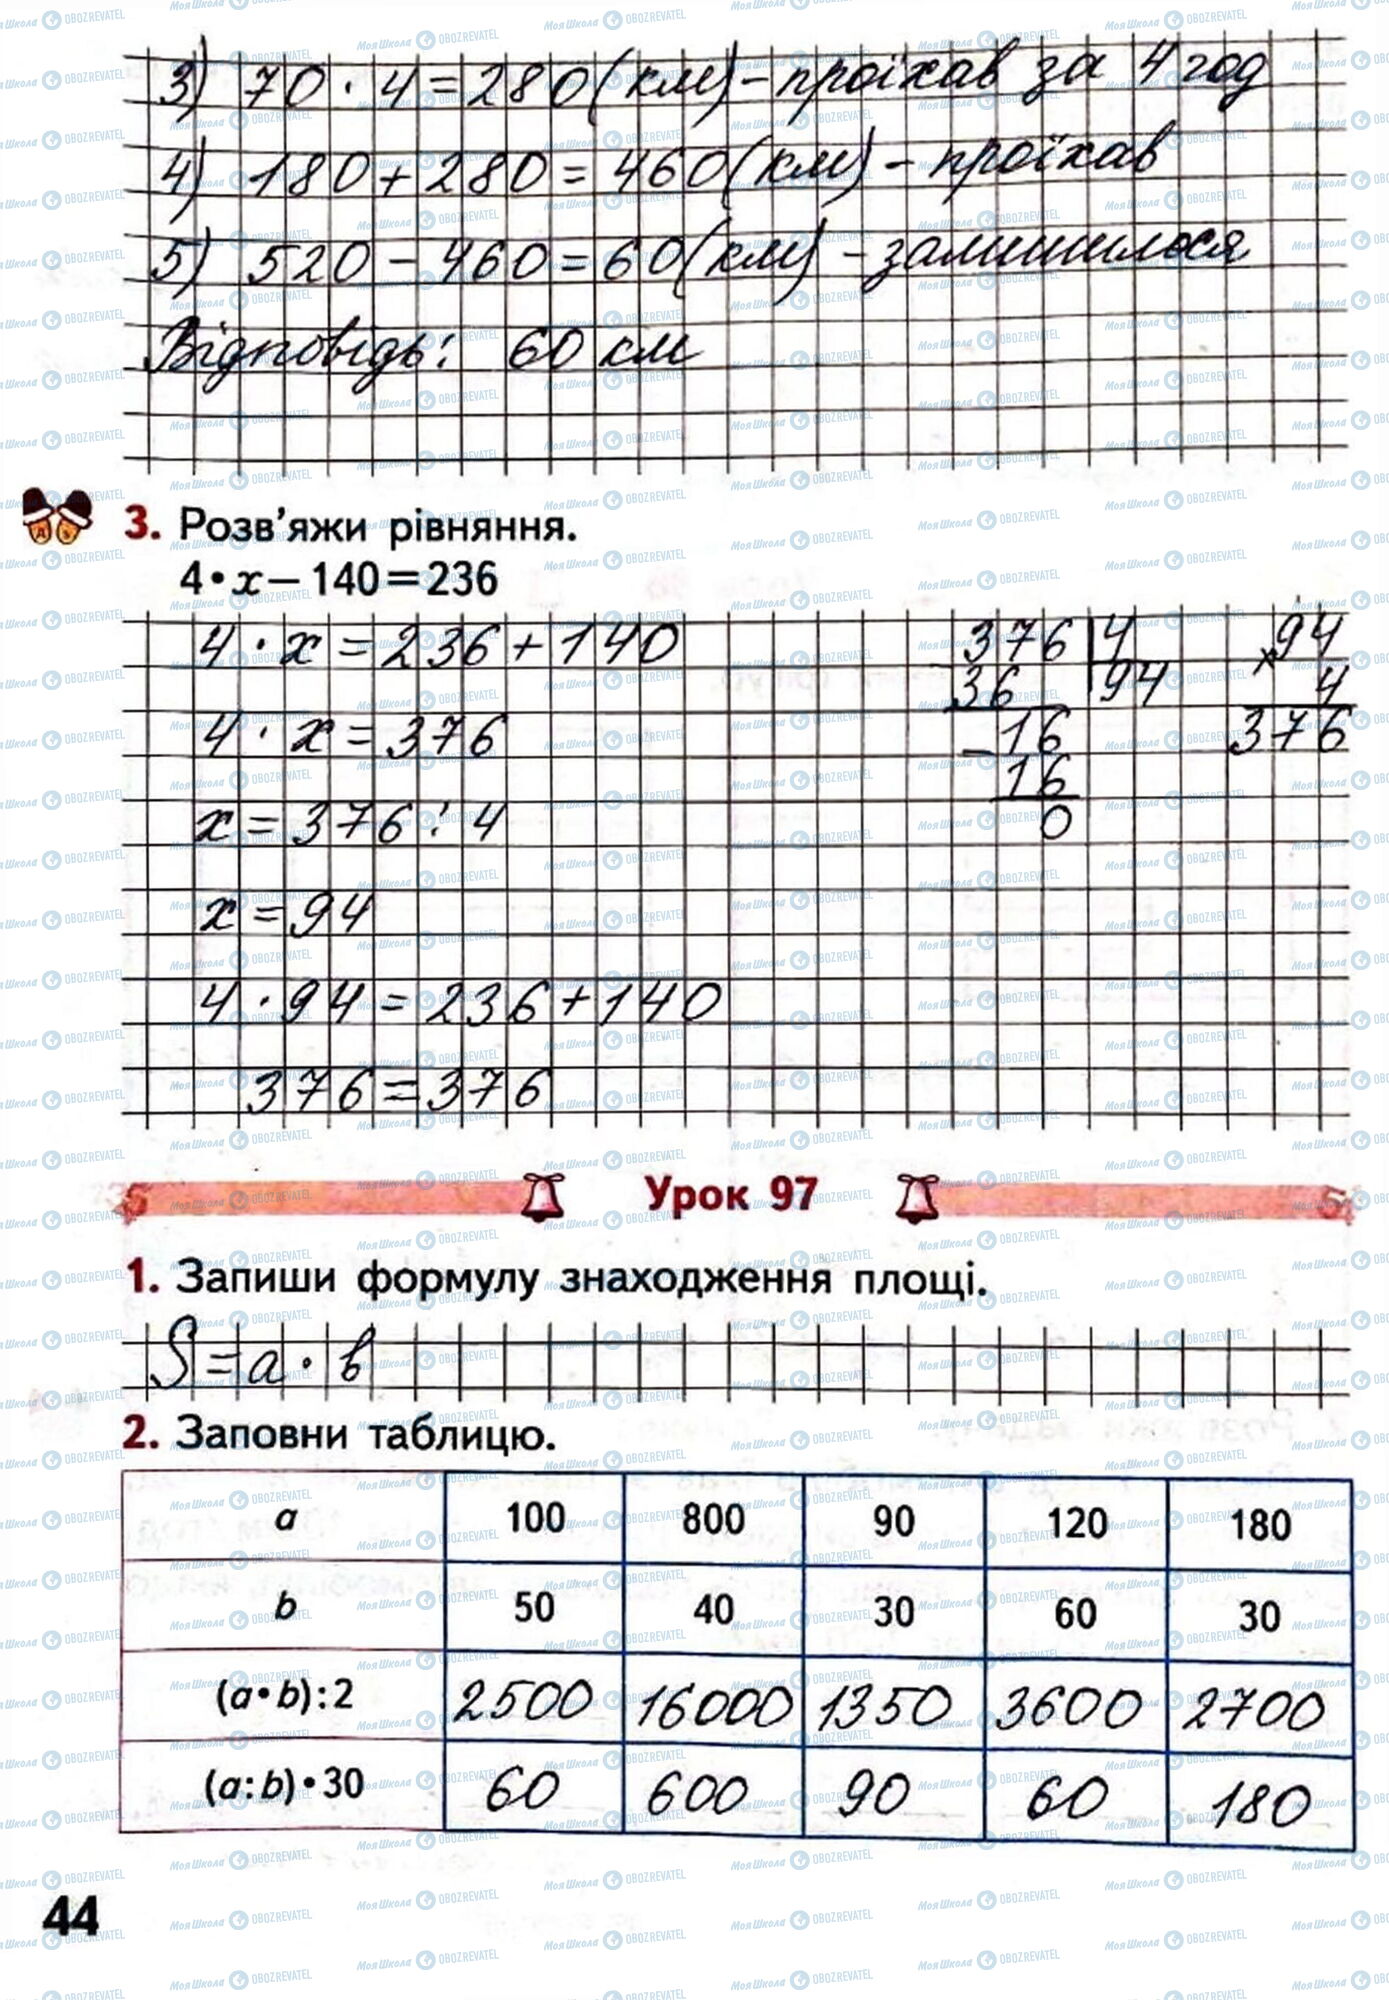 3) 70 · 4 = 280 (км) - проїхав за 4 год
4) 180 + 280 = 460 (км) - проїхав
5) 520 - 460 = 60 (км) - залишилося
Відповідь: 60 км
3. Розв'яжи рівняння.
4 · x – 140 = 236
4 · x = 236 + 140
4 · x = 376
x = 376 : 4
x = 94
4 · 94 = 236 + 140
376 = 376
376 | 4
36 | 94
- 16
16
0
94
× 4
376
Урок 97
1. Запиши формулу знаходження площі.
S = a · b
2. Заповни таблицю.
a 100 800 90 120 180
b 50 40 30 60 30
(a · b) : 2 2500 16000 1350 3600 2700
(a : b) · 30 60 600 90 60 180
44
МояШкола OBOZREVATEL